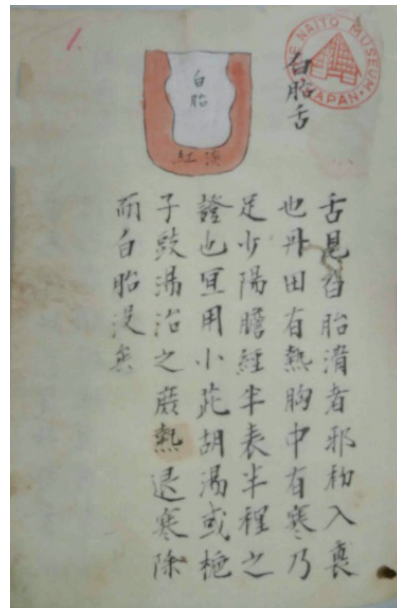 1.
THE NAITO MUSEUM JAPAN
白胎舌
白胎
淡紅
舌見白胎滑者邪初入裏
也丹田有熱胸中有寒乃
足少陽膽經半表半裡之
證也宜用小茈胡湯或梔
子豉湯治之蔗熱退寒除
而白胎没矣